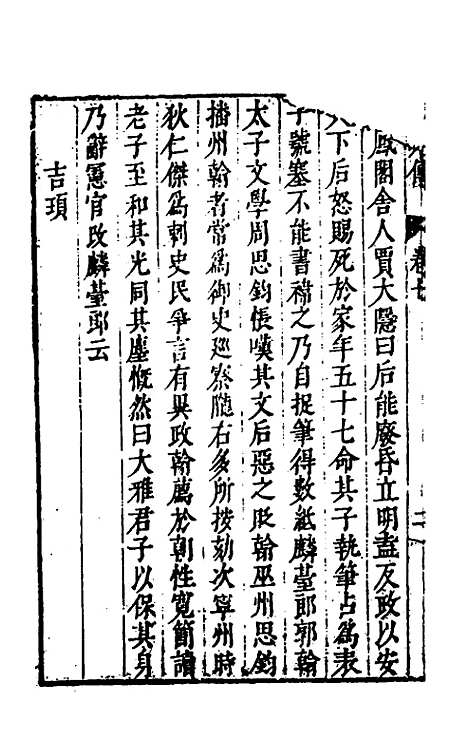 卷七
閣舍人賈大隱曰后能廢昏立明盍反政以安
下后怒賜死於家年五十七命其子執筆占爲表
子號塞不能書禕之乃自捉筆得數紙麟臺郎郭翰
太子文學周思鈞悵嘆其文后惡之貶翰巫州思鈞
播州翰者常爲御史巡察隴右多所按劾次寧州時
狄仁傑爲刺史民爭言有異政翰薦於朝性寬簡讀
老子至和其光同其塵慨然曰大雅君子以保其身
乃辭憲官改麟臺郎云
吉頊